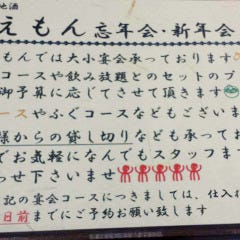 地酒
えもん 忘年会・新年会
えもんでは大小宴会承っております
コースや飲み放題とのセットのプ
御予算に応じてさせて頂きます
ースやふぐコースなどもございま
様からの貸し切りなども承ってお
でお気軽になんでもスタッフま
わせ下さいませ
記の宴会コースにつきましては、仕入れ
日前までにご予約お願い致します